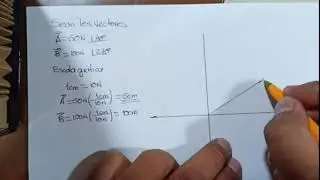 Sean los vectores
A = 50N
B = 100N
Escala gráfica
1cm = 10N
A = 50N (1cm/10N) = 5cm
B = 100N (1cm/10N) = 10cm